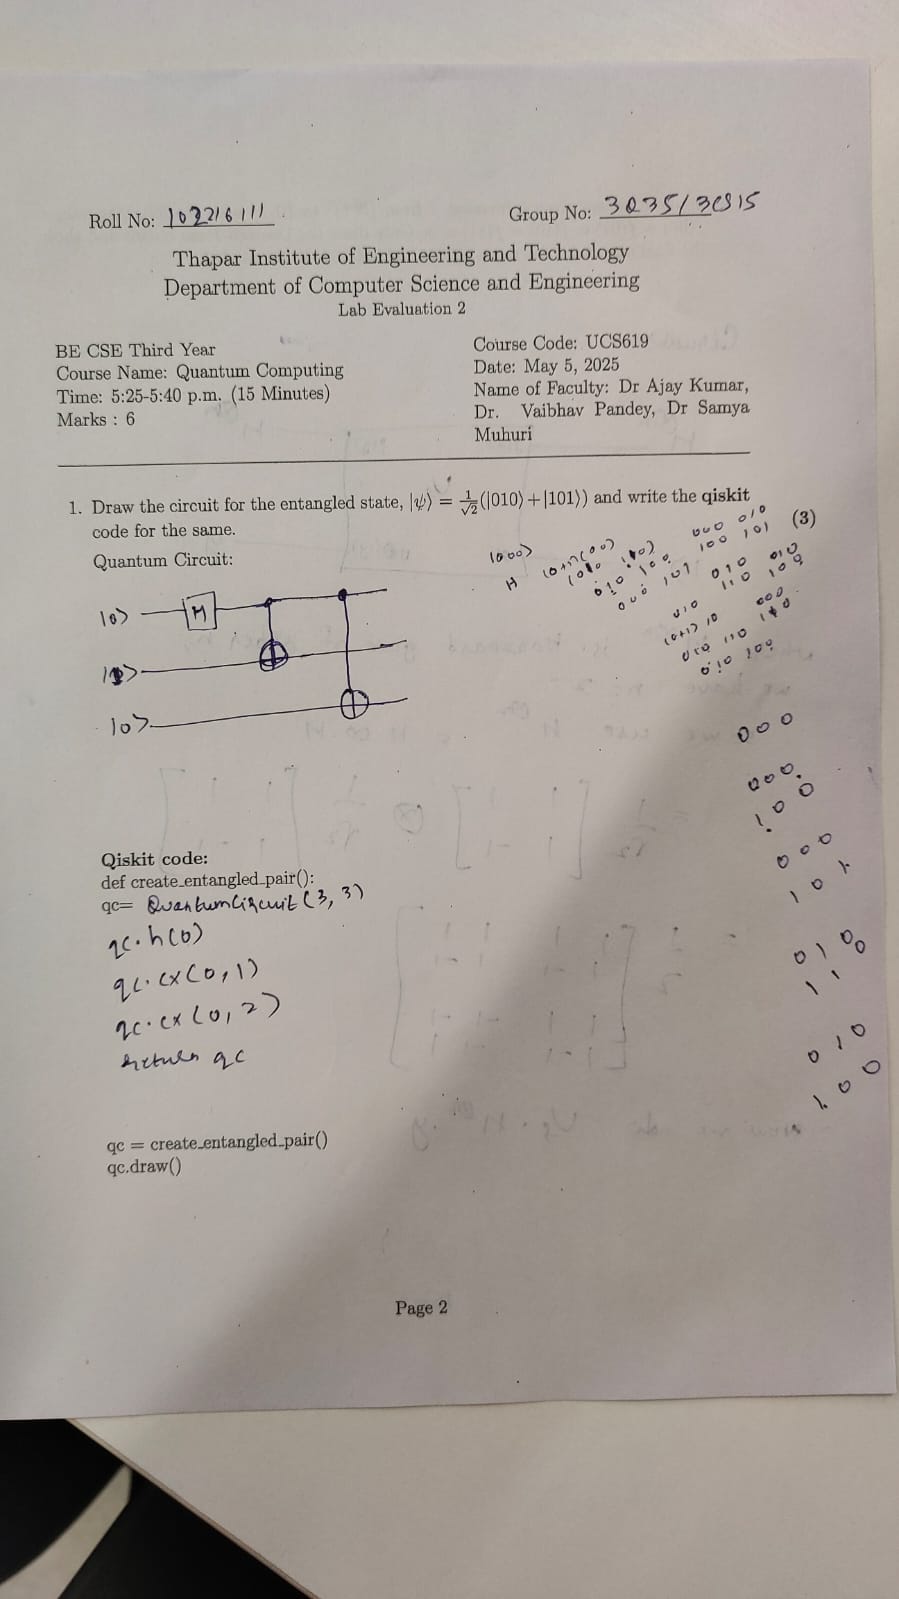 Roll No: 102216111
Group No: 3Q35/3CS15
Thapar Institute of Engineering and Technology
Department of Computer Science and Engineering
Lab Evaluation 2
BE CSE Third Year
Course Name: Quantum Computing
Time: 5:25-5:40 p.m. (15 Minutes)
Marks : 6
Course Code: UCS619
Date: May 5, 2025
Name of Faculty: Dr Ajay Kumar,
Dr. Vaibhav Pandey, Dr Samya
Muhuri
1. Draw the circuit for the entangled state, |ψ⟩ = 1/√2(|010⟩+|101⟩) and write the qiskit
code for the same.
(3)
Quantum Circuit:
|000⟩
|0⟩ H
|1⟩
|0⟩
000
000
100
000
101
010
010
100
Qiskit code:
def create_entangled_pair():
qc= QuantumCircuit(3, 3)
qc.h(0)
qc.cx(0,1)
qc.cx(0,2)
return qc
qc = create_entangled_pair()
qc.draw()
Page 2